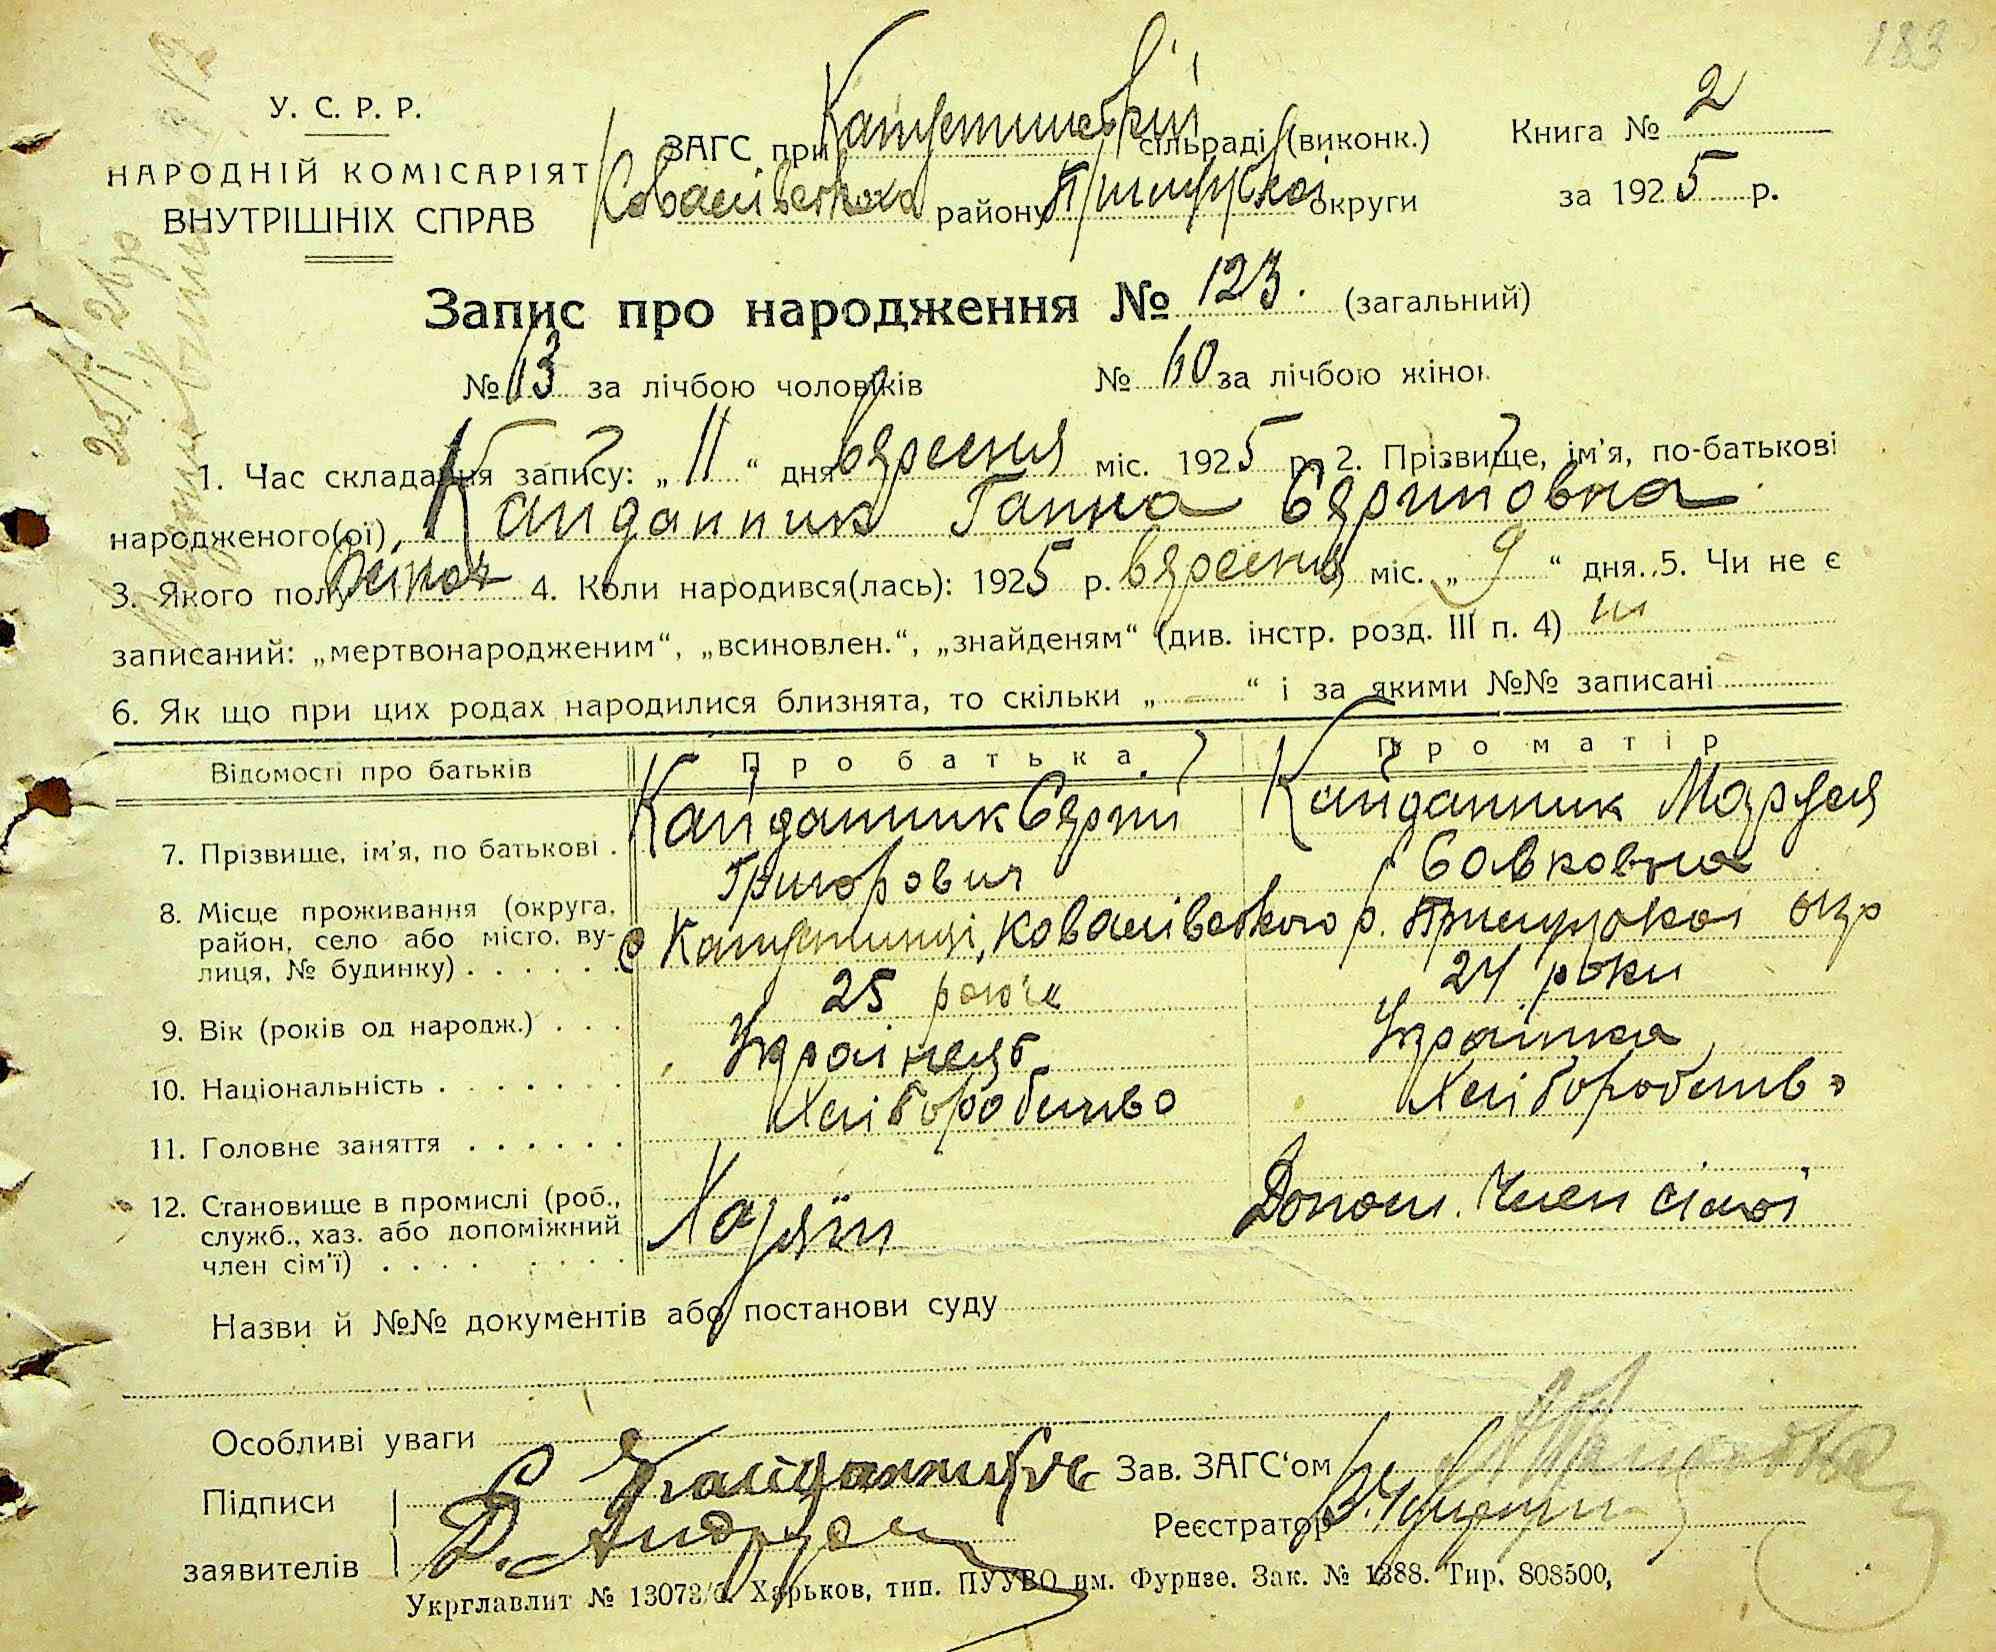 183
У. С. Р. Р.
НАРОДНІЙ КОМІСАРІЯТ
ВНУТРІШНІХ СПРАВ
ЗАГС при Капустинській сільраді (виконк.)
Ковалівського району Прилуцької округи
Книга № 2
за 1925 р.
Запис про народження № 123. (загальний)
№ 63 за лічбою чоловіків № 60 за лічбою жінок
1. Час складання запису: „11“ дня вересня міс. 1925 р. 2. Прізвище, ім'я, по-батькові
народженого(ої) Кайданник Ганна Сергиювна
3. Якого полу жіноч 4. Коли народився(лась): 1925 р. вересня міс. „9“ дня. 5. Чи не є
записаний: „мертвонародженим“, „всиновлен.“, „знайденям“ (див. інстр. розд. III п. 4) ні
6. Як що при цих родах народилися близнята, то скільки „ — “ і за якими №№ записані
Відомості про батьків Про батька Про матір
7. Прізвище, ім'я, по батькові . Кайданник Сергий Кайданник Маруся
Григорович Савковна
8. Місце проживання (округа, район, село або місто, вулиця, № будинку) . . . . . . с Капустинці, Ковалівського р. Прилуцької окр
9. Вік (років од народж.) . . . 25 років 24 роки
10. Національність . . . . . . . Українець Українка
11. Головне заняття . . . . . . Хліборобство Хліборобство
12. Становище в промислі (роб., служб., хаз. або допоміжний член сім'ї) . . . . . . . . Хазяїн Допом. член сімї
Назви й №№ документів або постанови суду
Особливі уваги
Підписи заявителів С Кайданник
Д. Андру
Зав. ЗАГС'ом
Реєстратор В.
Укрглавлит № 13073/б. Харьков, тип. ПУУВО им. Фрунзе. Зак. № 1388. Тир. 808500,